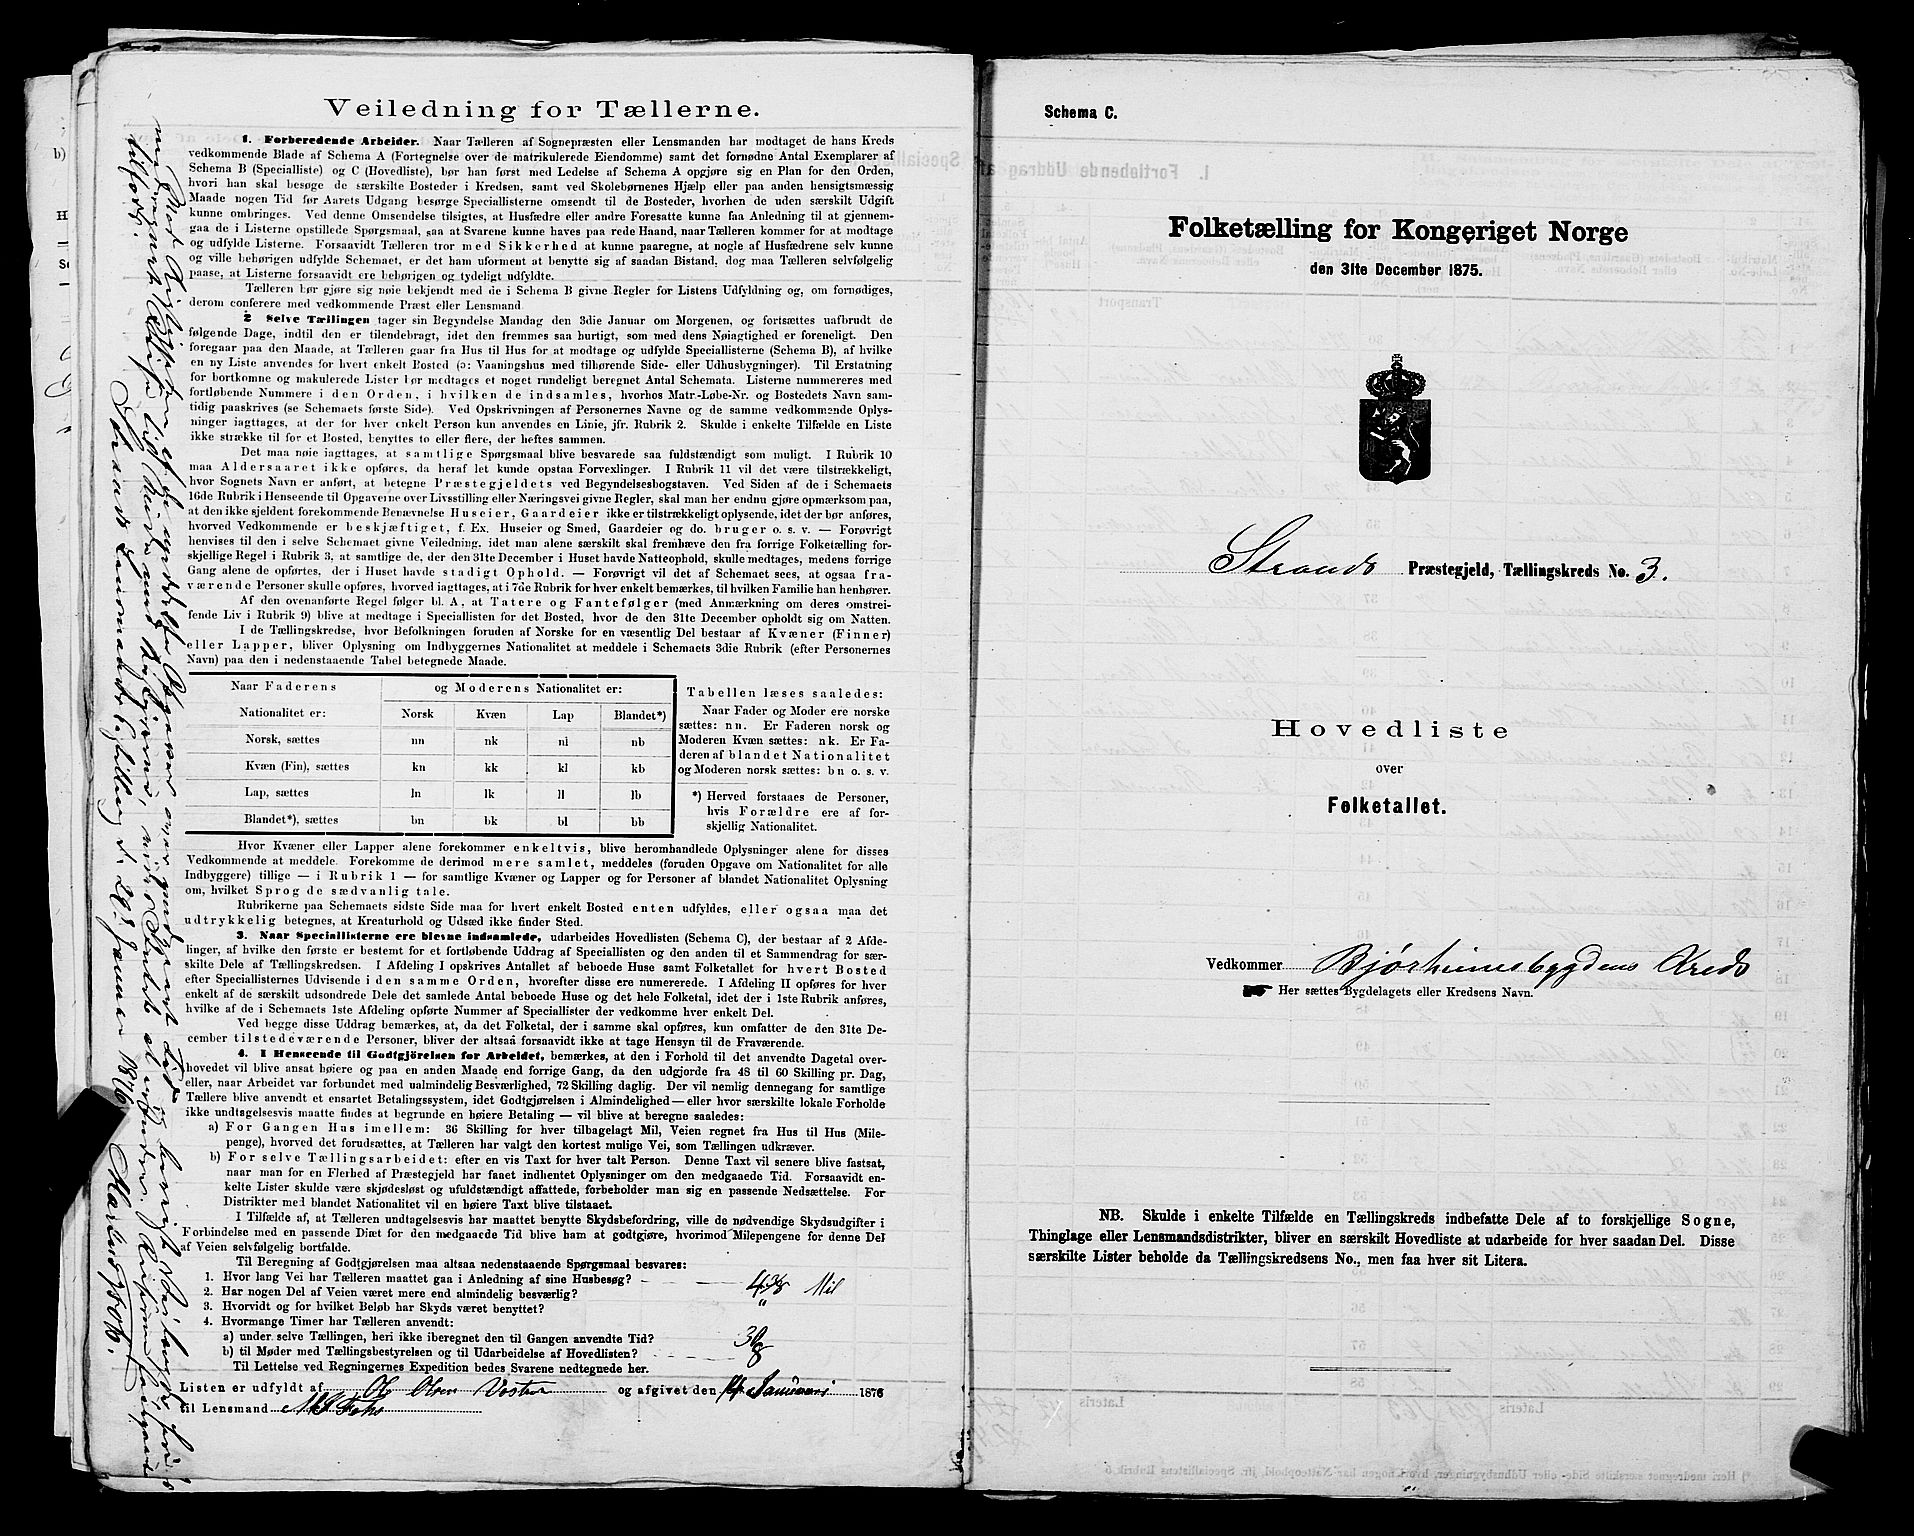 Veiledning for Tællerne.
1. Forberedende Arbeider. Naar Tælleren af Sognepræsten eller Lensmanden har modtaget de hans Kreds
vedkommende Blade af Schema A (Fortegnelse over de matrikulerede Eiendomme) samt det fornødne Antal Exemplarer af
Schema B (Specialliste) og C (Hovedliste), bør han først med Ledelse af Schema A opgjøre sig en Plan for den Orden,
hvori han skal besøge de særskilte Bosteder i Kredsen, samt ved Skolebørnenes Hjælp eller paa anden hensigtsmæssig
Maade nogen Tid før Aarets Udgang besørge Speciallisterne omsendt til de Bosteder, hvorhen de uden særskilt Udgift
kunne ombringes. Ved denne Omsendelse tilsigtes, at Husfædre eller andre Foresatte kunne faa Anledning til at gjennem-
gaa de i Listerne opstillede Spørgsmaal, saa at Svarene kunne haves paa rede Haand, naar Tælleren kommer for at modtage
og udfylde Listerne. Forsaavidt Tælleren tror med Sikkerhed at kunne paaregne, at nogle af Husfædrene selv kunne
og ville behørigen udfylde Schemaet, er det ham uforment at benytte sig af saadan Bistand, dog maa Tælleren selvfølgelig
paase, at Listerne forsaavidt ere behørigen og tydeligt udfyldte.
Tælleren bør gjøre sig nøie bekjendt med de i Schema B givne Regler for Listens Udfyldning og, om fornødiges,
derom conferere med vedkommende Præst eller Lensmand.
2 Selve Tællingen tager sin Begyndelse Mandag den 3die Januar om Morgenen, og fortsættes uafbrudt de
følgende Dage, indtil den er tilendebragt, idet den fremmes saa hurtigt, som med dens Nøiagtighed er foreneligt. Den
foregaar paa den Maade, at Tælleren gaar fra Hus til Hus for at modtage og udfylde Speciallisterne (Schema B), af hvilke
en ny Liste anvendes for hvert enkelt Bosted (ɔ: Vaaningshus med tilhørende Side- eller Udhusbygninger). Til Erstatning
for bortkomne og makulerede Lister bør medtages et noget rundeligt beregnet Antal Schemata. Listerne nummereres med
fortløbende Nummere i den Orden, i hvilken de indsamles, hvorhos Matr.-Løbe-Nr. og Bostedets Navn sam-
tidig paaskrives (se Schemaets første Side). Ved Opskrivningen af Personernes Navne og de samme vedkommende Oplys-
ninger iagttages, at der for hver enkelt Person kun anvendes en Linie, jfr. Rubrik 2. Skulde i enkelte Tilfælde en Liste
ikke strække til for et Bosted, benyttes to eller flere, der heftes sammen.
Det maa nøie iagttages, at samtlige Spørgsmaal blive besvarede saa fuldstændigt som muligt. I Rubrik 10
maa Aldersaaret ikke opføres, da heraf let kunde opstaa Forvexlinger. I Rubrik 11 vil det være tilstrækkeligt,
hvor Sognets Navn er anført, at betegne Præstegjeldets ved Begyndelsesbogstaven. Ved Siden af de i Schemaets
16de Rubrik i Henseende til Opgaverne over Livsstilling eller Næringsvei givne Regler, skal man her endnu gjøre opmærksom paa,
at den ikke sjeldent forekommende Benævnelse Huseier, Gaardeier ikke er tilstrækkeligt oplysende, idet der bør anføres,
hvorved Vedkommende er beskjæftiget, f. Ex. Huseier og Smed, Gaardeier og do. bruger o. s. v. — Forøvrigt
henvises til den i selve Schemaet givne Veiledning, idet man alene særskilt skal fremhæve den fra forrige Folketælling for-
skjellige Regel i Rubrik 3, at samtlige de, der den 31te December i Huset havde Natteophold, skulle medtages, medens forrige
Gang alene de opførtes, der i Huset havde stadigt Ophold. — Forøvrigt vil det af Schemaet sees, at ogsaa fra-
værende Personer skulle opføres, hvorved iagttages, at i 7de Rubrik for hver enkelt bemærkes, til hvilken Familie han henhører.
Af den ovenanførte Regel følger bl. A, at Tatere og Fantefølger (med Anmærkning om deres omstrei-
fende Liv i Rubrik 9) blive at medtage i Speciallisten for det Bosted, hvor de den 31te December opholdt sig om Natten.
I de Tællingskredse, hvor Befolkningen foruden af Norske for en væsentlig Del bestaar af Kvæner (Finner)
eller Lapper, bliver Oplysning om Indbyggernes Nationalitet at meddele i Schemaets 3die Rubrik (efter Personernes
Navn) paa den i nedenstaaende Tabel betegnede Maade.
Naar Faderens og Moderens Nationalitet er:
Nationalitet er: Norsk Kvæn Lap Blandet*)
Norsk, sættes nn nk nl nb
Kvæn (Fin), sættes kn kk kl kb
Lap, sættes ln lk ll lb
Blandet*), sættes bn bk bl bb
Tabellen læses saaledes:
Naar Fader og Moder ere norske
sættes: nn. Er Faderen norsk og
Moderen Kvæn sættes: nk. Er Fa-
deren af blandet Nationalitet
og Moderen norsk sættes: bn o. s. v.
*) Herved forstaaes de Personer,
hvis Forældre ere af for-
skjellig Nationalitet.
Hvor Kvæner eller Lapper alene forekommer enkeltvis, blive heromhandlede Oplysninger alene for disses
Vedkommende at meddele. Forekomme de derimod mere samlet, meddeles (foruden Opgave om Nationalitet for alle
Indbyggere) tillige — i Rubrik 1 — for samtlige Kvæner og Lapper og for Personer af blandet Nationalitet Oplysning
om, hvilket Sprog de sædvanlig tale.
Rubrikerne paa Schemaets sidste Side maa for hvert enkelt Bosted enten udfyldes, eller ogsaa maa det
udtrykkelig betegnes, at Kreaturhold og Udsæd ikke finder Sted.
3. Naar Speciallisterne ere blevne indsamlede, udarbeides Hovedlisten (Schema C), der bestaar af 2 Afde-
linger, af hvilke den første er bestemt for et fortløbende Uddrag af Speciallisten og den anden til et Sammendrag for sær-
skilte Dele af Tællingskredsen. I Afdeling I opskrives Antallet af beboede Huse samt Folketallet for hvert Bosted
efter Speciallisternes Udvisende i den samme Orden, hvorefter disse ere numererede. I Afdeling II opføres for hver
enkelt af de særskilt udsondrede Dele det samlede Antal beboede Huse og det hele Folketal, idet der i 1ste Rubrik anføres,
hvilke af de i Schemaets 1ste Afdeling opførte Nummer af Speciallister der vedkomme hver enkelt Del.
Ved begge disse Uddrag bemærkes, at, da det Folketal, der i samme skal opføres, kun omfatter de den 31te De-
cember tilstedeværende Personer, bliver der altsaa forsaavidt ikke at tage Hensyn til de Fraværende.
4. I Henseende til Godtgjörelsen for Arbeidet, bemærkes, at den i Forhold til det anvendte Dagetal over-
hovedet vil blive ansat høiere og paa en anden Maade end forrige Gang, da den udgjorde fra 48 til 60 Skilling pr. Dag,
eller, naar Arbeidet var forbundet med ualmindelig Besværlighed, 72 Skilling daglig. Der vil nemlig dennegang for samtlige
Tællere blive anvendt et ensartet Betalingssystem, idet Godtgjørelsen i Almindelighed — eller hvor særskilte lokale Forholde
ikke undtagelsesvis maatte findes at begrunde en høiere Betaling — vil blive at beregne saaledes:
a) For Gangen Hus imellem: 36 Skilling for hver tilbagelagt Mil, Veien regnet fra Hus til Hus (Mile-
penge), hvorved det forudsættes, at Tælleren har valgt den kortest mulige Vei, som Tællingen udkræver.
b) For selve Tællingsarbeidet: efter en vis Taxt for hver talt Person. Denne Taxt vil senere blive fastsat,
naar man for en Flerhed af Præstegjeld har faaet indhentet Oplysninger om den medgaaede Tid. Forsaavidt en-
kelte Lister skulde være skjødesløst og ufuldstændigt affattede, forbeholder man sig en passende Nedsættelse. For
Distrikter med blandet Nationalitet vil en høiere Taxt blive tilstaaet.
I Tilfælde af, at Tælleren undtagelsesvis har maattet benytte Skydsbefordring, ville de nødvendige Skydsudgifter i
Forbindelse med en passende Diæt for den medgaaede Tid blive ham at godtgjøre, hvorimod Milepengene for denne Del
af Veien selvfølgelig bortfalde.
Til Beregning af Godtgjørelsen maa altsaa nedenstaaende Spørgsmaal besvares:
1. Hvor lang Vei har Tælleren maattet gaa i Anledning af sine Husbesøg? 4 3/8 Mil
2. Har nogen Del af Veien været mere end almindelig besværlig? "
3. Hvorvidt og for hvilket Beløb har Skyds været benyttet?
4. Hvormange Timer har Tælleren anvendt:
a) under selve Tællingen, heri ikke iberegnet den til Gangen anvendte Tid? 30
b) til Møder med Tællingsbestyrelsen og til Udarbeidelse af Hovedlisten? 8
Til Lettelse ved Regningernes Expedition bedes Svarene nedtegnede her.
Listen er udfyldt af Ole Olsen og afgivet den Januari 1876
til Lensmand
Schema C.
Folketælling for Kongeriget Norge
den 31te December 1875.
Strands Præstegjeld, Tællingskreds No. 3.
Hovedliste
over
Folketallet.
Vedkommer Bjørheimsbygdens Kreds
Her sættes Bygdelagets eller Kredsens Navn.
NB. Skulde i enkelte Tilfælde en Tællingskreds indbefatte Dele af to forskjellige Sogne,
Thinglage eller Lensmandsdistrikter, bliver en særskilt Hovedliste at udarbeide for hver saadan Del. Disse
særskilte Lister beholde da Tællingskredsens No., men faa hver sit Litera.